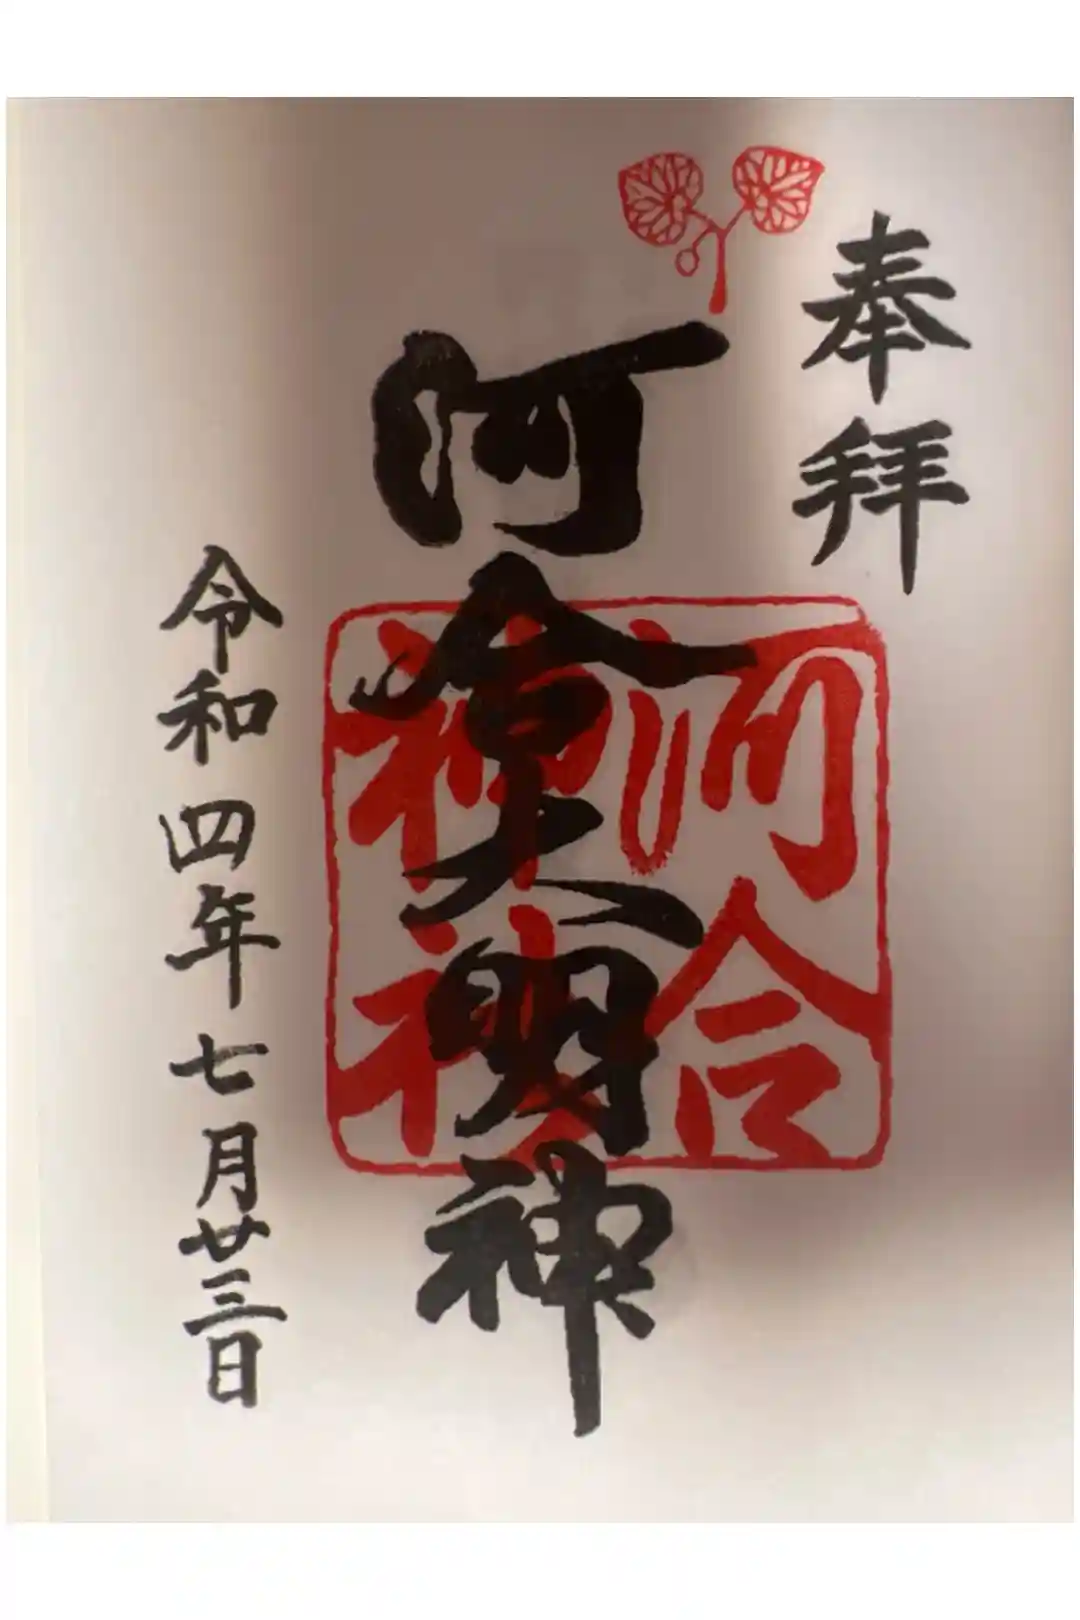 奉拝
河合大明神
河合
神社
令和四年七月廿三日